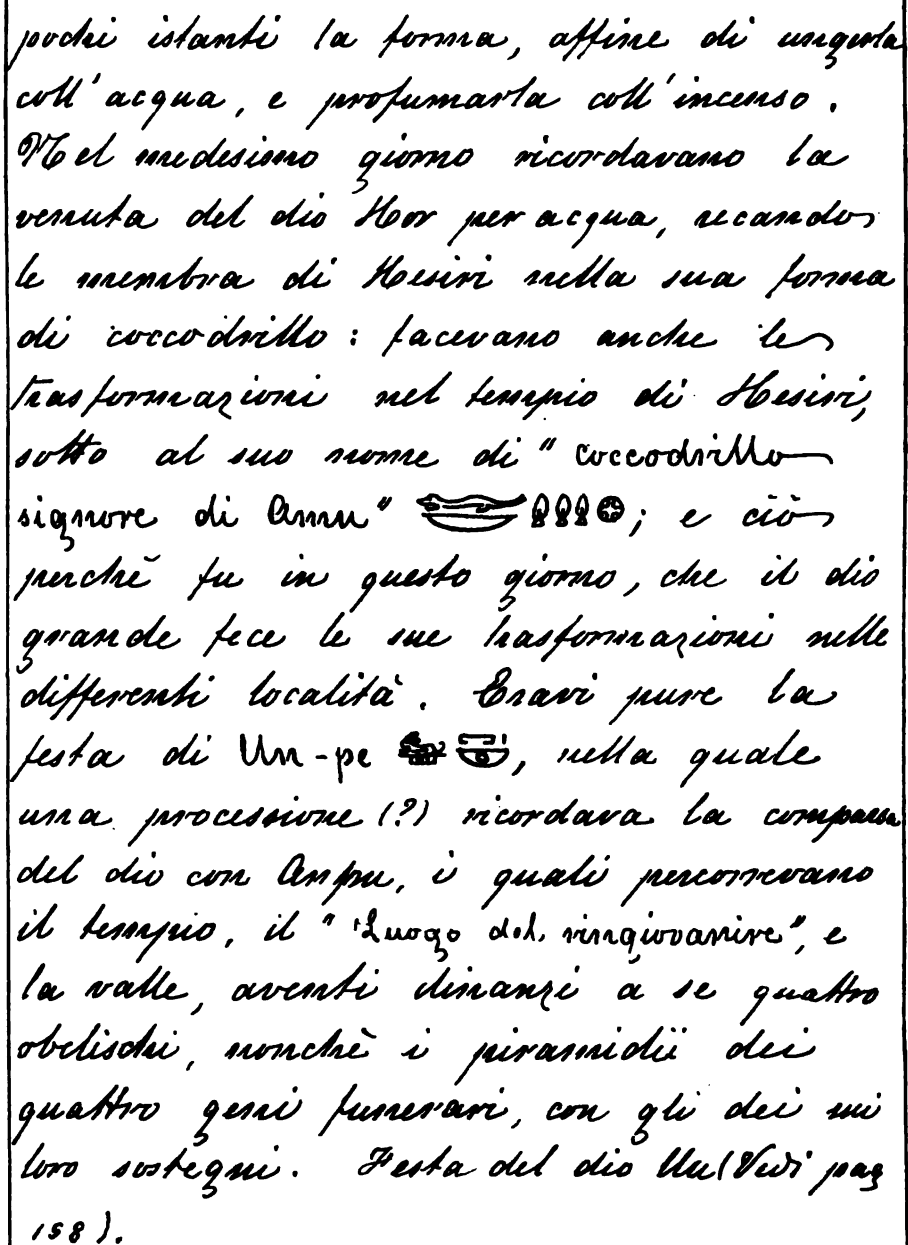 pochi istanti la forma, affine di ungerla
coll'acqua, e profumarla coll'incenso.
Nel medesimo giorno ricordavano la
venuta del dio Hor per acqua, recando
le membra di Hesiri nella sua forma
di coccodrillo: facevano anche le
trasformazioni nel tempio di Hesiri,
sotto al suo nome di "Coccodrillo
signore di Amu" ; e ciò
perchè fu in questo giorno, che il dio
grande fece le sue trasformazioni nelle
differenti località. Eravi pure la
festa di Un-pe , nella quale
una processione (?) ricordava la comparsa
del dio con Anpu, i quali percorrevano
il tempio, il "Luogo del ringiovanire", e
la valle, aventi dinanzi a se quattro
obelischi, nonchè i piramidii dei
quattro geni funerari, con gli dei sui
loro sostegni. Festa del dio (Vedi pag
158).